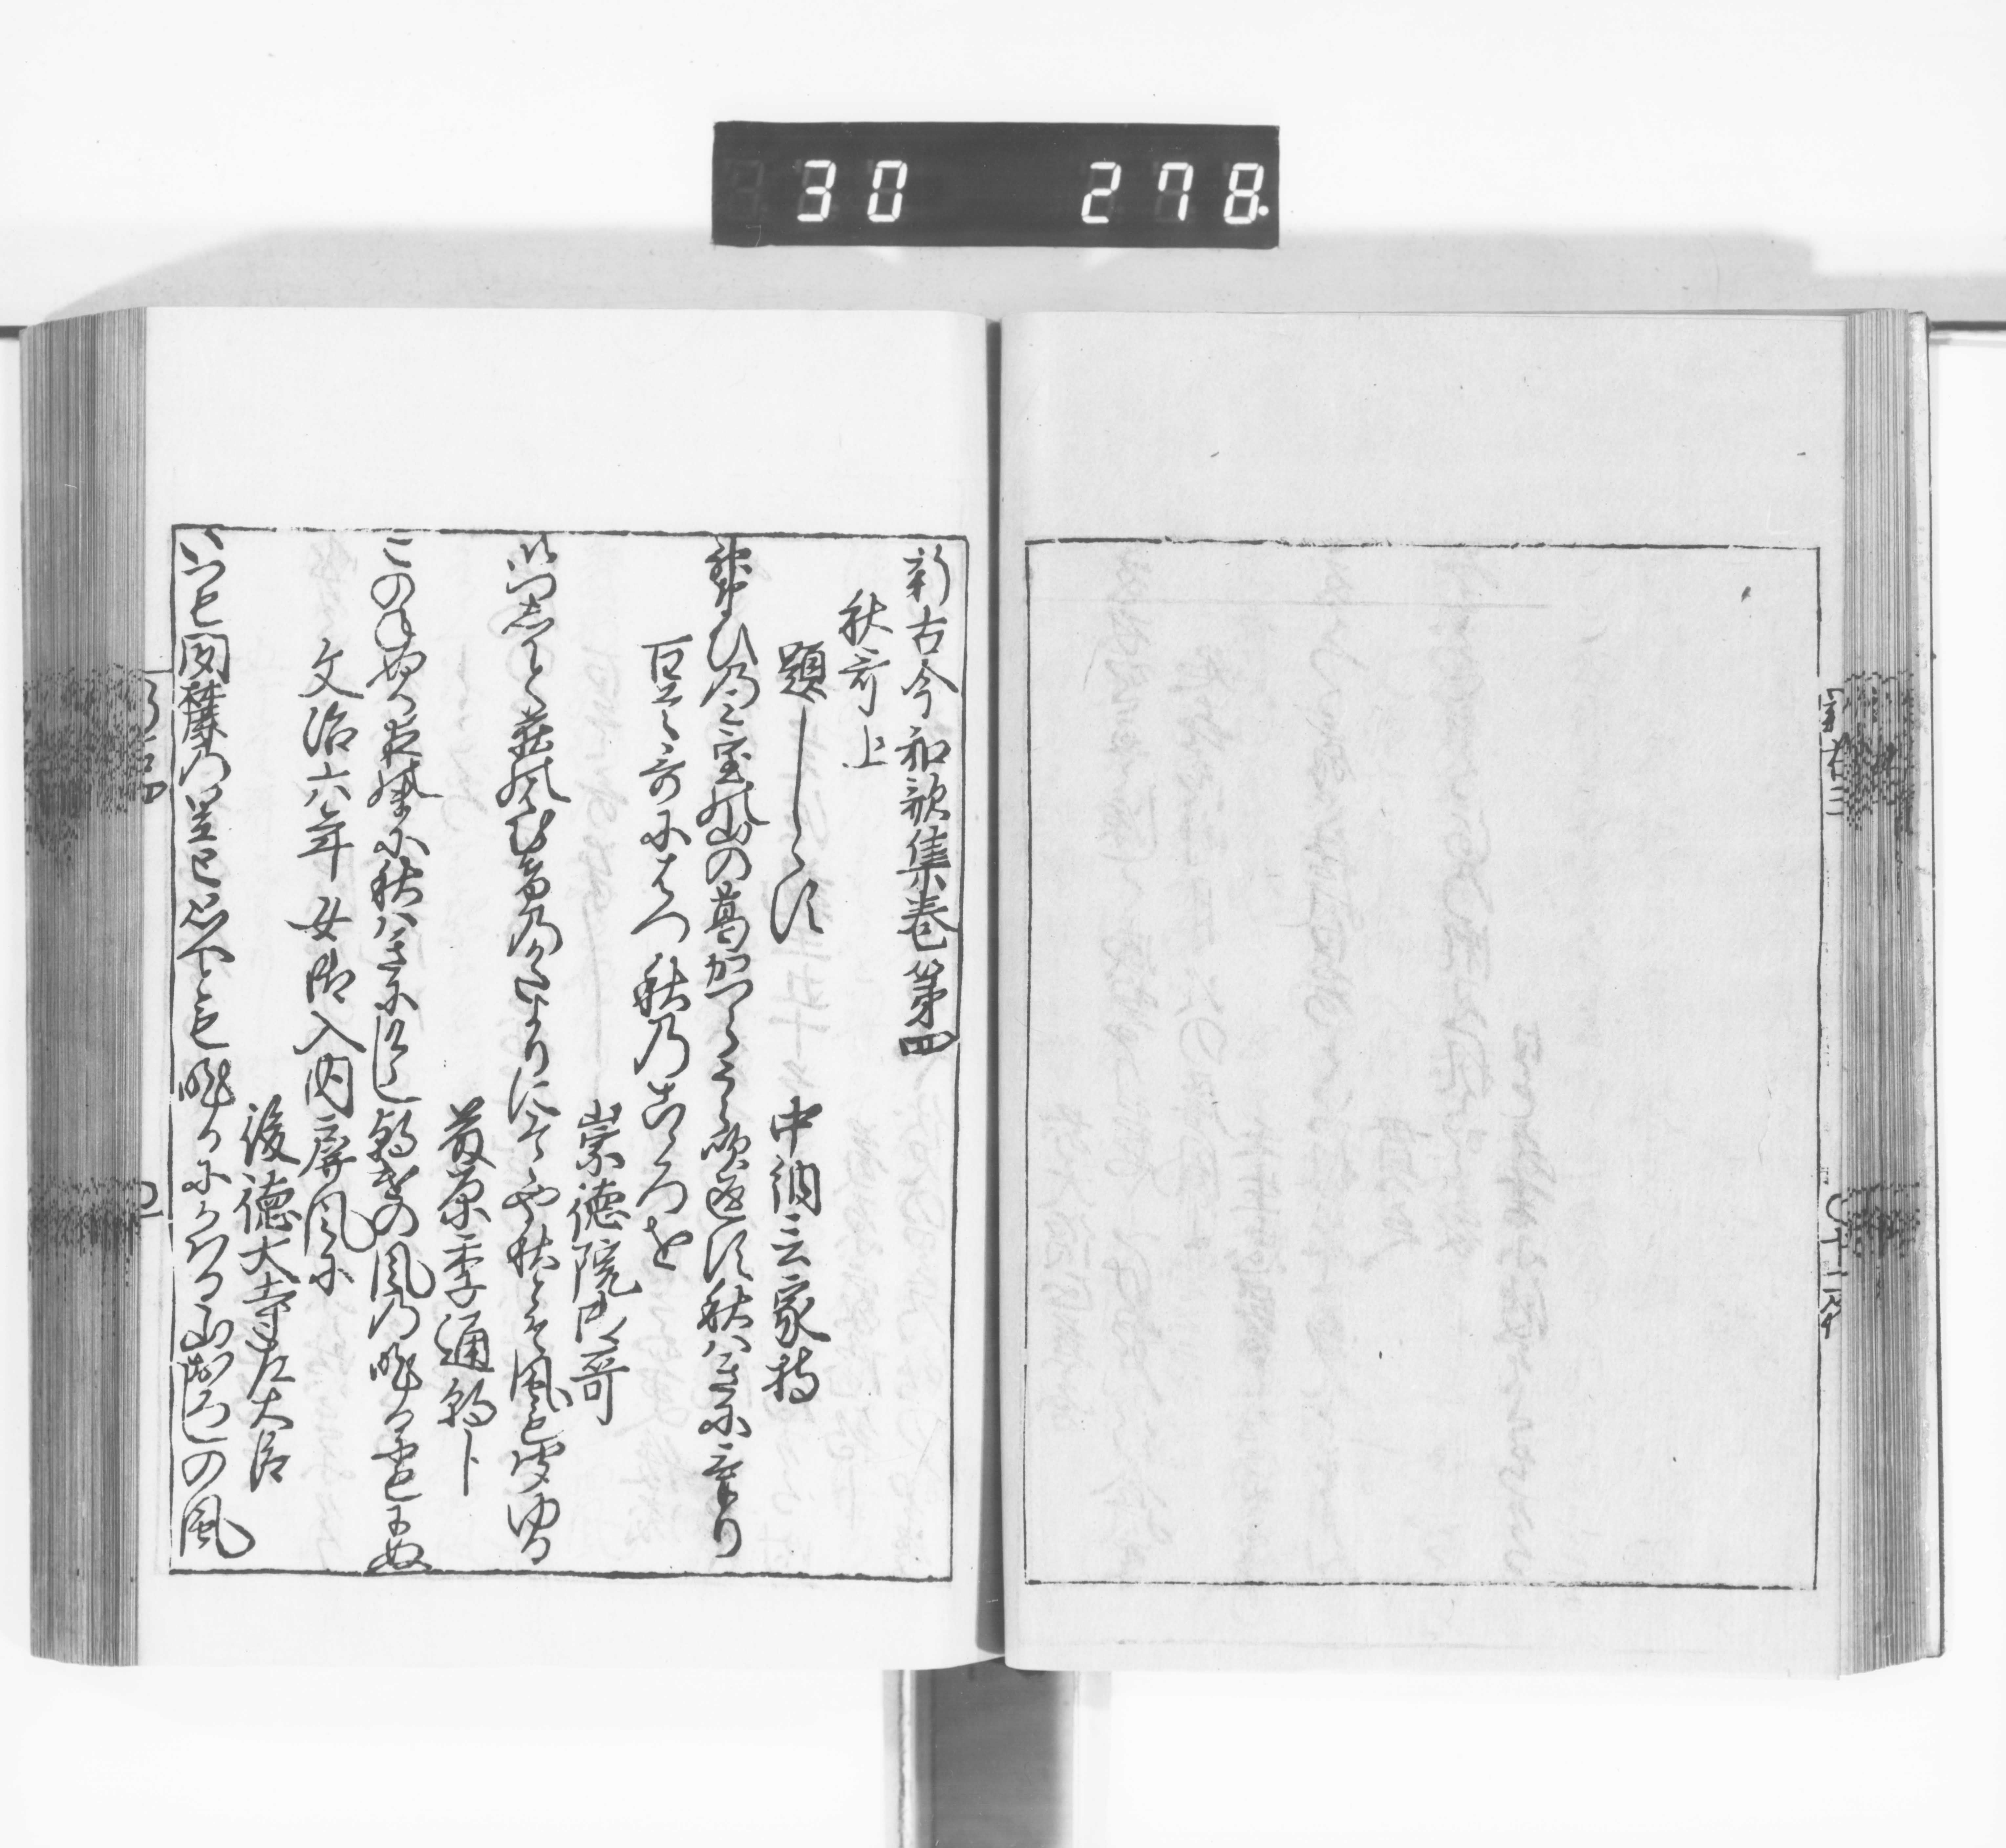 30 278.
新古今和歌集巻第四
秋哥上
題しらす 中納言家持
神なひのみむろの山の葛かつらうら吹返す秋はきにけり
百首哥にはつ秋のこゝろを
崇徳院御哥
いつしかと荻の葉むけのかたよりにそゝや秋とそ風も聞ゆる
藤原季通朝臣
このねぬる夜のまに秋はきにけらし朝けの風の昨日にもにぬ
文治六年女御入内屏風に
後徳大寺左大臣
いつも聞麓の里と思へとも昨日にかはる山おろしの風